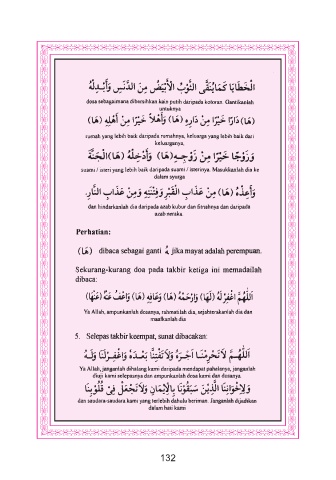 الْخَطَايَا كَمَا يُنَقَّى الثَّوْبُ الْأَبْيَضُ مِنَ الدَّنَسِ وَأَبْدِلْهُ
dosa sebagaimana dibersihkan kain putih daripada kotoran. Gantikanlah
untuknya
(هَا) دَارًا خَيْرًا مِنْ دَارِهِ (هَا) وَأَهْلاً خَيْرًا مِنْ أَهْلِهِ (هَا)
rumah yang lebih baik daripada rumahnya, keluarga yang lebih baik dari
keluarganya,
وَزَوْجًا خَيْرًا مِنْ زَوْجِهِ (هَا) وَأَدْخِلْهُ (هَا) الْجَنَّةَ
suami / isteri yang lebih baik daripada suami / isterinya. Masukkanlah dia ke
dalam syurga
وَأَعِذْهُ (هَا) مِنْ عَذَابِ الْقَبْرِ وَفِتْنَتِهِ وَمِنْ عَذَابِ النَّارِ.
dan hindarkanlah dia daripada azab kubur dan fitnahnya dan daripada
azab neraka.
Perhatian:
(هَا) dibaca sebagai ganti هُ jika mayat adalah perempuan.
Sekurang-kurang doa pada takbir ketiga ini memadailah
dibaca:
اَللَّهُمَّ اغْفِرْ لَهُ (لَهَا) وَارْحَمْهُ (هَا) وَعَافِهِ (هَا) وَاعْفُ عَنْهُ (عَنْهَا)
Ya Allah, ampunkanlah dosanya, rahmatilah dia, sejahterakanlah dia dan
maafkanlah dia
5. Selepas takbir keempat, sunat dibacakan:
اَللَّهُمَّ لاَ تَحْرِمْنَا أَجْرَهُ وَلاَ تَفْتِنَّا بَعْدَهُ وَاغْفِرْ لَنَا وَلَهُ
Ya Allah, janganlah dihalang kami daripada mendapat pahalanya, janganlah
diuji kami selepasnya dan ampunkanlah dosa kami dan dosanya.
وَلِإِخْوَانِنَا الَّذِيْنَ سَبَقُوْنَا بِالْإِيْمَانِ وَلاَ تَجْعَلْ فِيْ قُلُوْبِنَا
dan saudara-saudara kami yang terlebih dahulu beriman. Janganlah dijadikan
dalam hati kami
132